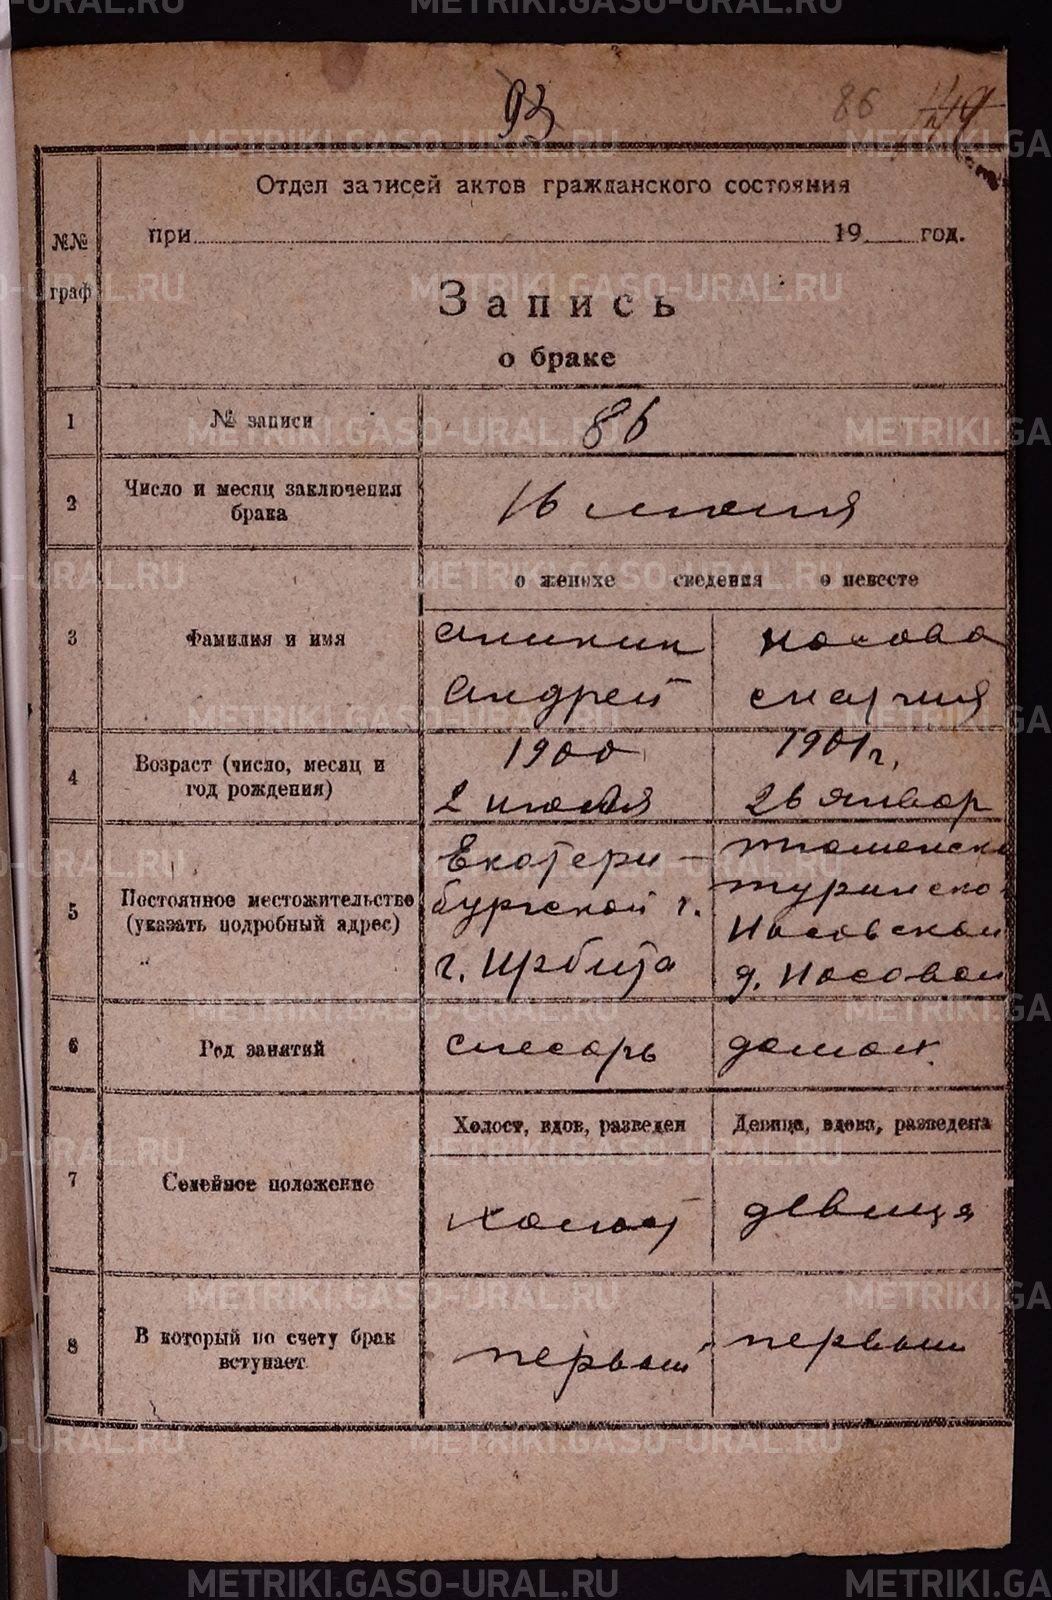 METRIKI.GASO-URAL.RU
93
86
149
Отдел записей актов гражданского состояния
при 19 год.
№№ граф
Запись
о браке
1 № записи 86
2 Число и месяц заключения брака 16 июня
о женихе сведения о невесте
3 Фамилия и имя
Аникин Носова
Андрей Мария
4 Возраст (число, месяц и год рождения)
1900 1901 г.
2 июля 26 январ
5 Постоянное местожительство (указать подробный адрес)
Екатери- тюменско
бургской г. туринско
Носовской
г. Ирбита д. Носовой
6 Род занятий слесарь домох.
Холост, вдов, разведен Девица, вдова, разведена
7 Семейное положение холост девица
8 В который по счету брак вступает первый первый
METRIKI.GASO-URAL.RU